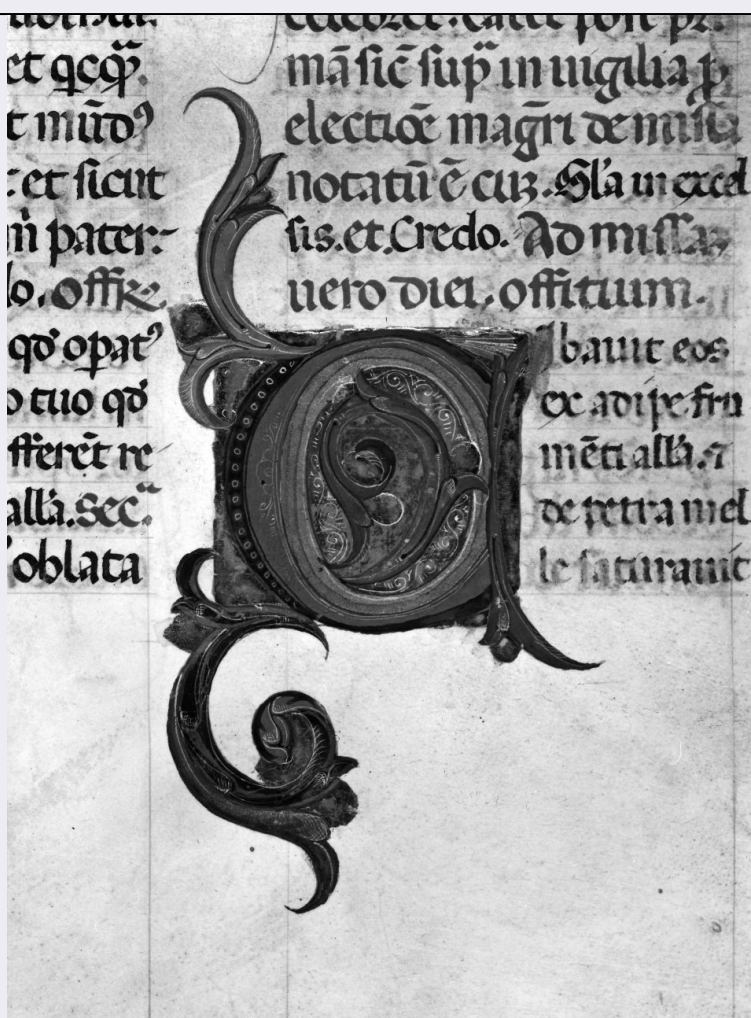 et qcq̄
t mūdꝰ
et sicut
pater:
lo. offr̄e
qđ opatꝰ
o tuo qđ
fferēt re
alla. Sec̄
oblata
mā sic̄ sup̄ in uigilia p̱
electiōe magr̄i de missa
notatū ē cuʒ. Gl'a in excel
sis. et. Credo. Ad missaʒ
uero diei. offitium.
Ibauit eos
ex adipe fru
mēti all'a. ⁊
de petra mel
le saturauit